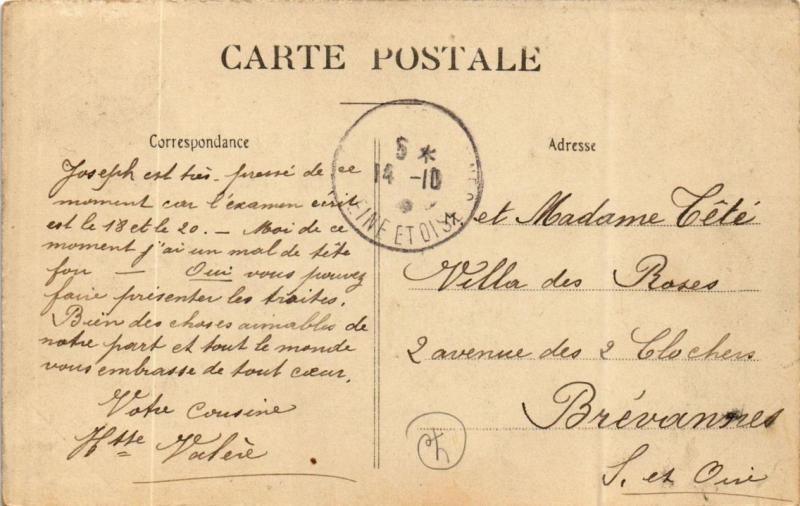 CARTE POSTALE
Correspondance
Joseph est très pressé de ce
moment car l'examen écrit
est le 18 et le 20. — Moi de ce
moment j'ai un mal de tête
fou — Oui vous pouvez
faire présenter les traites.
Bien des choses aimables de
notre part et tout le monde
vous embrasse de tout cœur.
Votre cousine
Htte Valère
5 *
14 -10
SEINE ET OISE
Adresse
M. et Madame Têté
Villa des Roses
2 avenue des 2 Clochers
Brévannes
S. et Oise